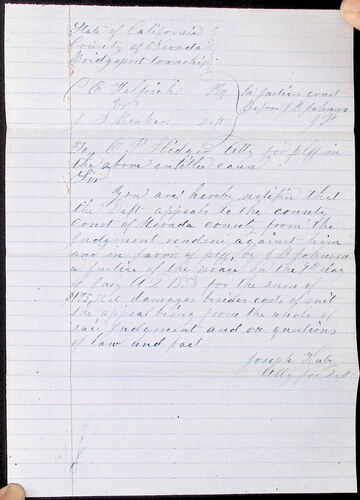 State of California
County of Nevada
Bridgeport Township
C E Helprich Plff
vs
Parker Deft
In justice court
Before J H Johnson
J P
To C P Hodges Atty for plff in
the above entitled cause
Sir
You are hereby notified that
the Deft appeals to the county
court of Nevada county from the
Judgment rendered against him
and in favor of plff, by J H Johnson
a justice of the peace on the day
of July A D for the sum of
$175, damages besides costs of suit
the appeal being from the whole of
said judgement and on questions
of law and fact
Joseph
Atty for Deft